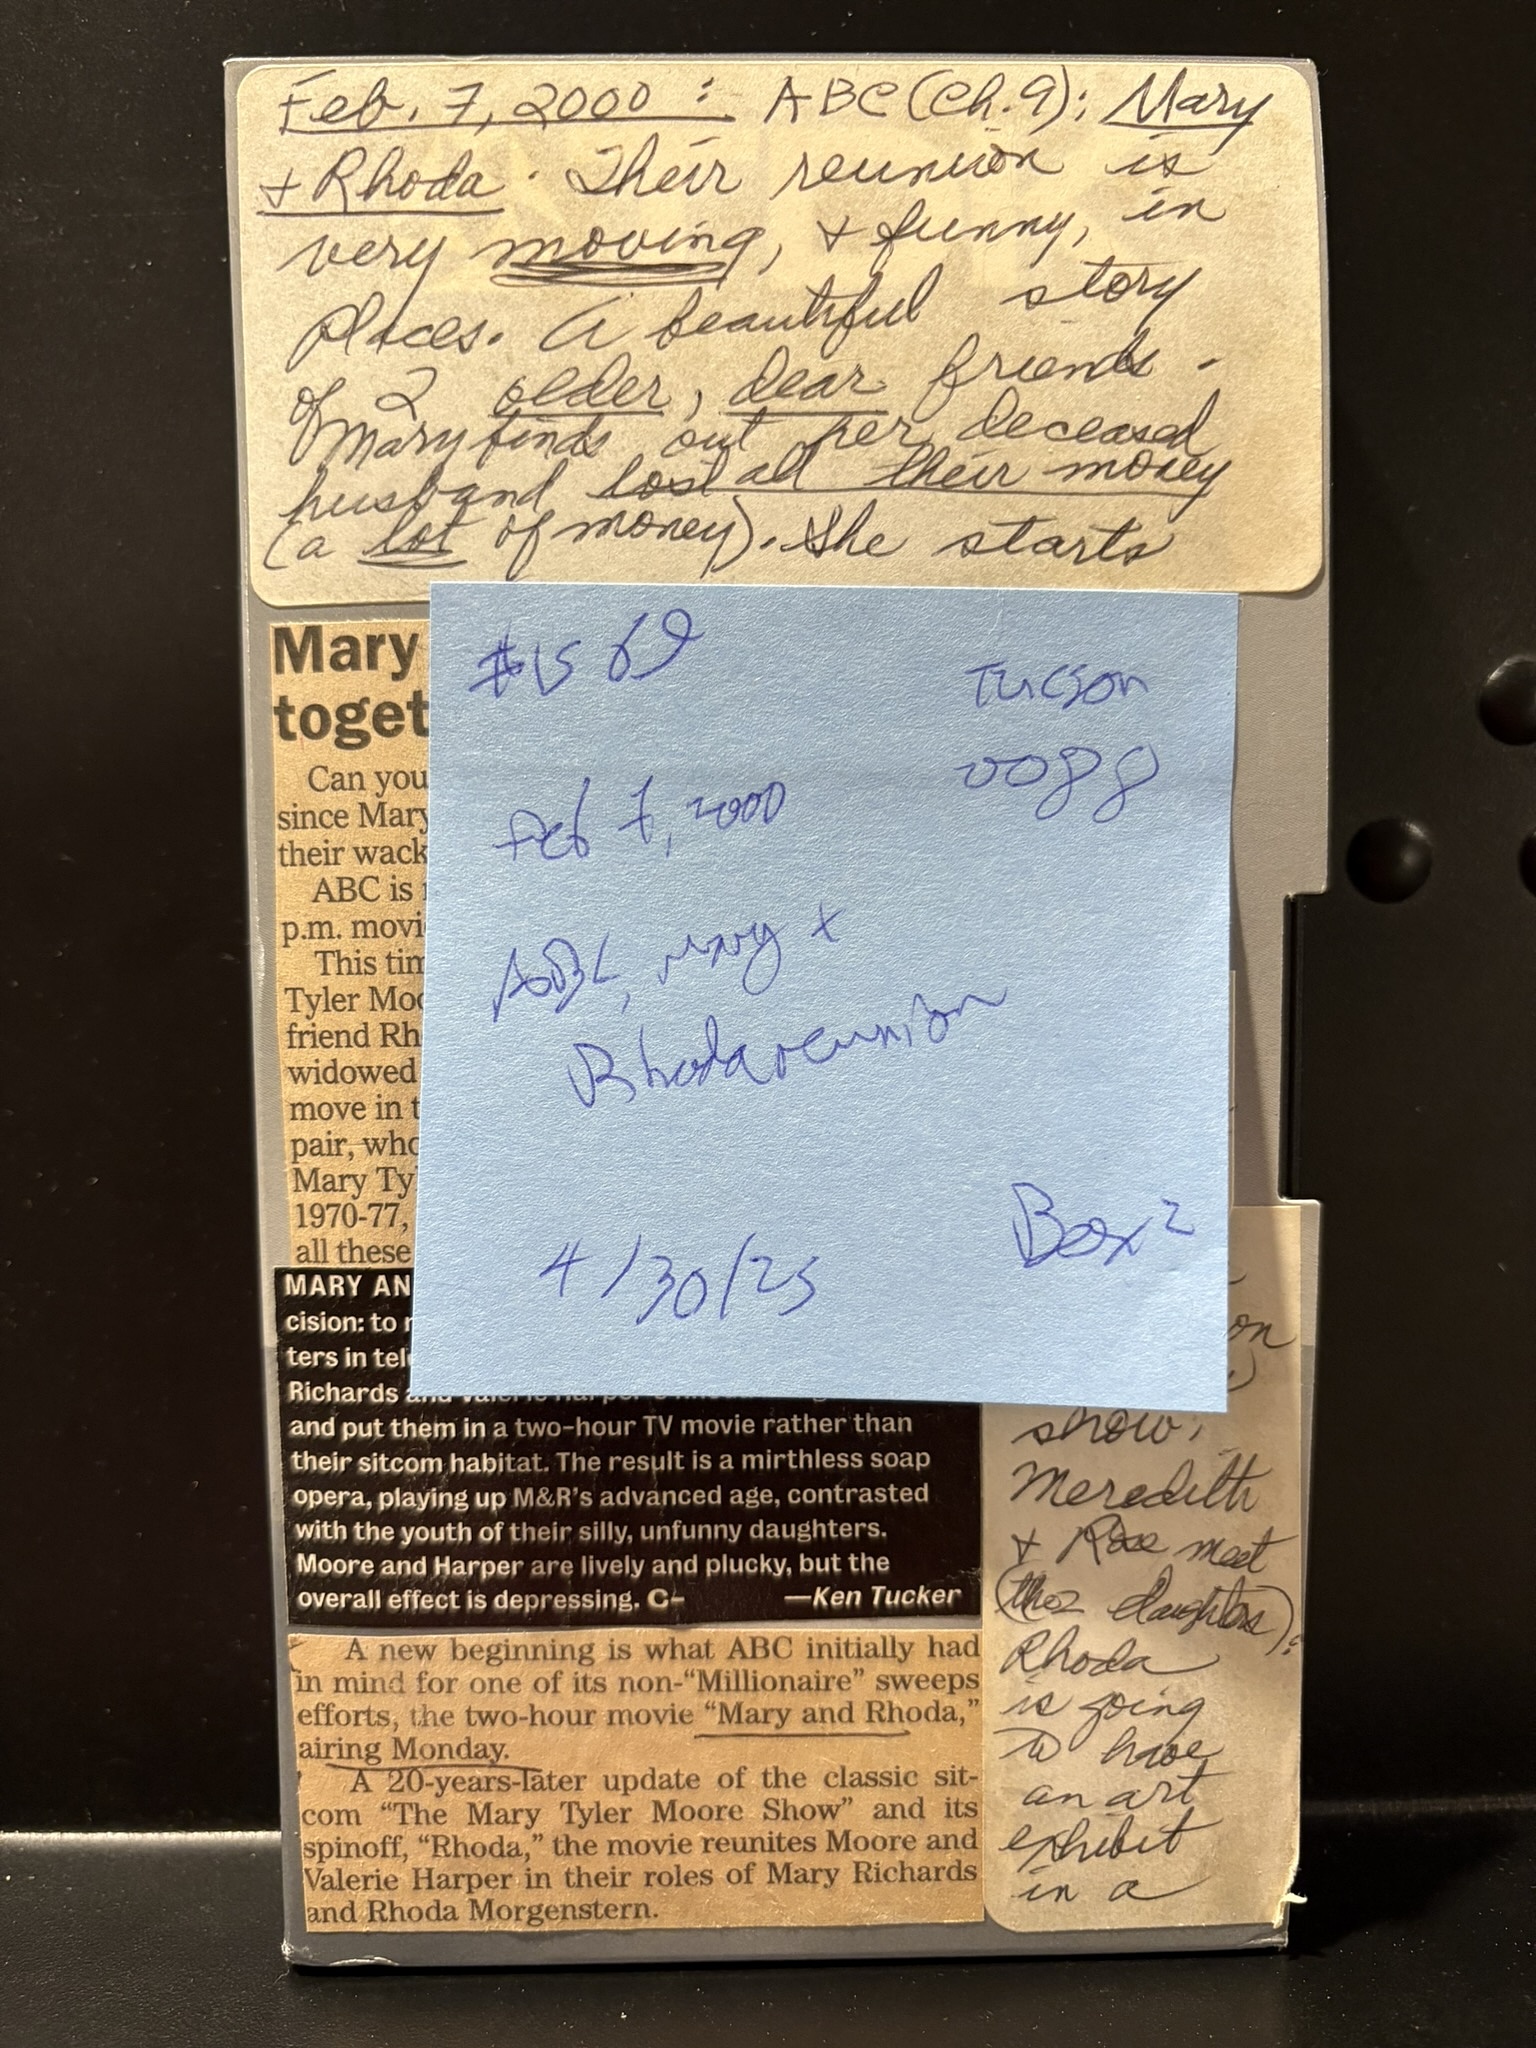 Feb. 7, 2000 : ABC (Ch. 9): Mary
+ Rhoda. Their reunion is
very moving, + funny, in
places. A beautiful story
of 2 older, dear friends.
Mary finds out her deceased
husband lost all their money
(a lot of money). She starts
#1569
Tucson
0088
Feb 7, 2000
ABC, Mary +
Rhoda reunion
Box 2
4/30/25
Mary
toget
Can you
since Mary
their wack
ABC is
p.m. movi
This tim
Tyler Moo
friend Rh
widowed
move in t
pair, who
Mary Ty
1970-77,
all these
MARY AN
cision: to r
ters in tel
Richards and Valerie Harper's
and put them in a two-hour TV movie rather than
their sitcom habitat. The result is a mirthless soap
opera, playing up M&R's advanced age, contrasted
with the youth of their silly, unfunny daughters.
Moore and Harper are lively and plucky, but the
overall effect is depressing. C– —Ken Tucker
A new beginning is what ABC initially had
in mind for one of its non-“Millionaire” sweeps
efforts, the two-hour movie “Mary and Rhoda,”
airing Monday.
A 20-years-later update of the classic sit-
com “The Mary Tyler Moore Show” and its
spinoff, “Rhoda,” the movie reunites Moore and
Valerie Harper in their roles of Mary Richards
and Rhoda Morgenstern.
on
show.
Meredith
+ Rose meet
(the 2 daughters).
Rhoda
is going
to have
an art
exhibit
in a